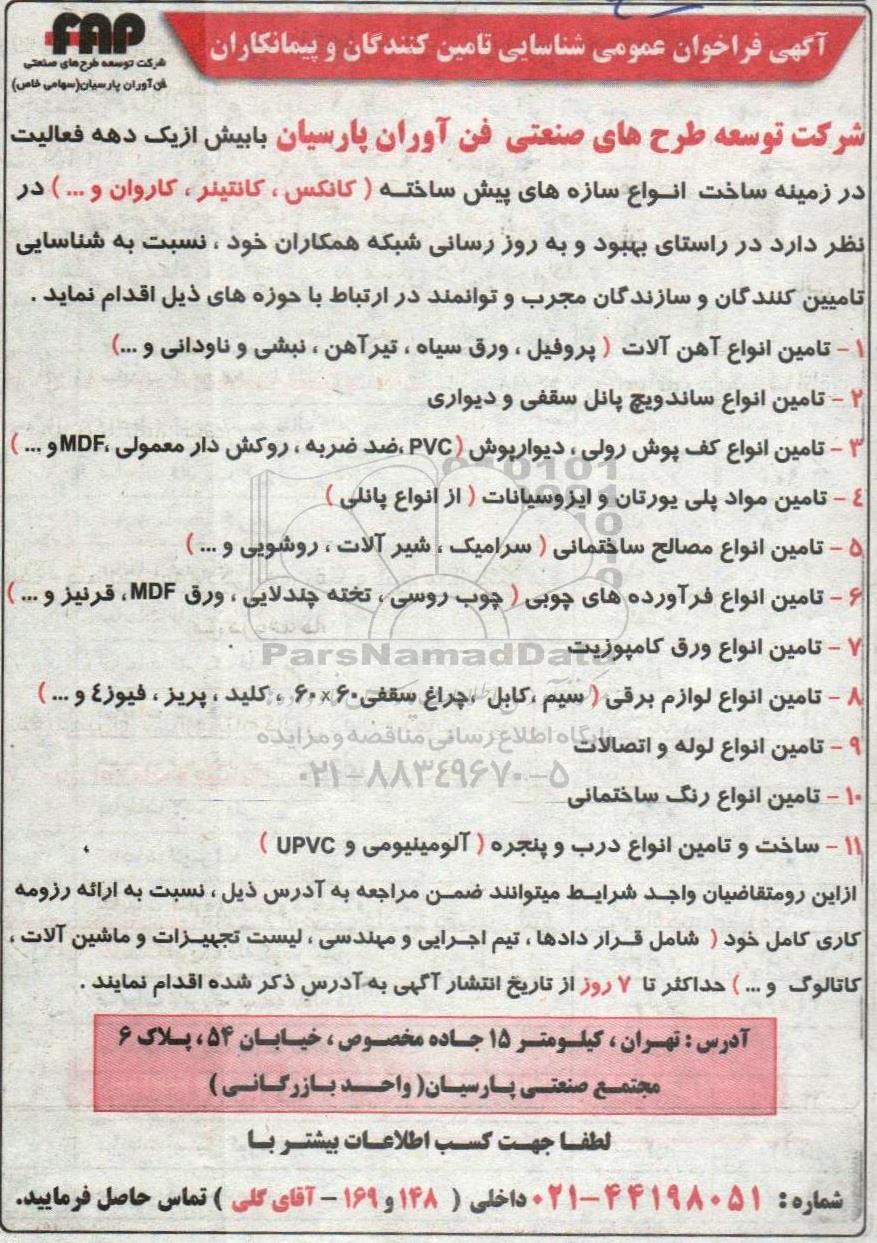 آگهی فراخوان عمومی شناسایی تامین کنندگان و پیمانکاران
FAP
شرکت توسعه طرح‌های صنعتی
فن‌آوران پارسیان(سهامی خاص)
شرکت توسعه طرح های صنعتی فن آوران پارسیان بابیش ازیک دهه فعالیت
در زمینه ساخت انـواع سازه های پیش ساختـه ( کانکس ، کانتینر ، کاروان و ... ) در
نظر دارد در راستای بهبود و به روز رسانی شبکه همکاران خود ، نسبت به شناسایی
تامیین کنندگان و سازندگان مجرب و توانمند در ارتباط با حوزه های ذیل اقدام نماید .
۱ - تامین انواع آهن آلات ( پروفیل ، ورق سیاه ، تیرآهن ، نبشی و ناودانی و ...)
۲ - تامین انواع ساندویچ پانل سقفی و دیواری
۳ - تامین انواع کف پوش رولی ، دیوارپوش ( PVC ،ضد ضربه ، روکش دار معمولی ،MDFو ... )
٤ - تامین مواد پلی یورتان و ایزوسیانات ( از انواع پانلی )
۵ - تامین انواع مصالح ساختمانی ( سرامیک ، شیر آلات ، روشویی و ... )
۶ - تامین انواع فرآورده های چوبی ( چوب روسی ، تخته چندلایی ، ورق MDF ، قرنیز و ... )
۷ - تامین انواع ورق کامپوزیت
ParsNamadData
۸ - تامین انواع لوازم برقی ( سیم ،کابل ،چراغ سقفی۶۰×۶۰ ، کلید ، پریز ، فیوز٤ و ... )
پایگاه اطلاع رسانی مناقصه و مزایده
۹ - تامین انواع لوله و اتصالات
۰۲۱-۸۸۳٤۹۶۷۰-۵
۱۰ - تامین انواع رنگ ساختمانی
۱۱ - ساخت و تامین انواع درب و پنجره ( آلومینیومی و UPVC )
ازاین رومتقاضیان واجـد شرایـط میتوانند ضمـن مراجعه به آدرس ذیل ، نسبت به ارائه رزومه
کاری کامل خود ( شامل قـرار دادها ، تیم اجرایی و مهندسی ، لیست تجهیـزات و ماشین آلات ،
کاتالوگ و ... ) حداکثر تا ۷ روز از تاریخ انتشار آگهی به آدرس ذکر شده اقدام نمایند .
آدرس : تهـران ، کیلـومتـر ۱۵ جـاده مخصـوص ، خیـابـان ۵۴ ، پـلاک ۶
مجتمـع صنعتـی پـارسیـان( واحـد بـازرگـانـی )
لطفـا جهـت کسـب اطلاعـات بیشتـر بـا
شماره : ۰۲۱-۴۴۱۹۸۰۵۱ داخلی ( ۱۴۸ و ۱۶۹ - آقای گلی ) تماس حاصل فرمایید.